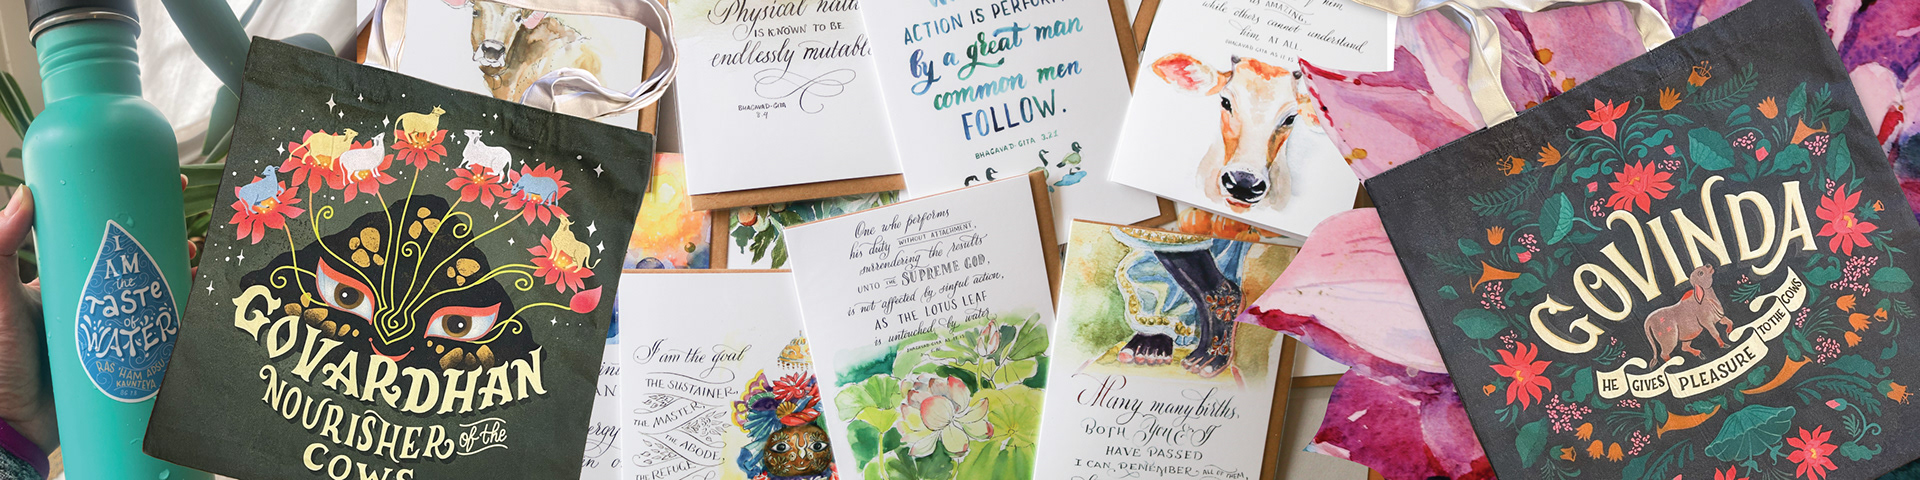 I
AM
the
TASTE
of
WATER
RAS 'HAM APSU
KAUNTEYA
GOVARDHAN
NOURISHER of the
COWS
Physical nature
IS KNOWN TO BE
endlessly mutable
BHAGAVAD-GITA
8.4
ACTION IS PERFORM
by a great man
common men
FOLLOW.
BHAGAVAD-GITA 3.21
him
as AMAZING,
while others cannot understand
him AT ALL.
I am the goal
THE SUSTAINER,
THE MASTER,
THE ABODE,
THE REFUGE
One who performs
his duty WITHOUT ATTACHMENT,
surrendering the results
UNTO THE SUPREME GOD,
is not affected by sinful action,
AS THE LOTUS LEAF
is untouched by water
Many many births,
BOTH You & I
HAVE PASSED
I CAN REMEMBER ALL OF THEM,
GOVINDA
HE GIVES PLEASURE TO THE COWS